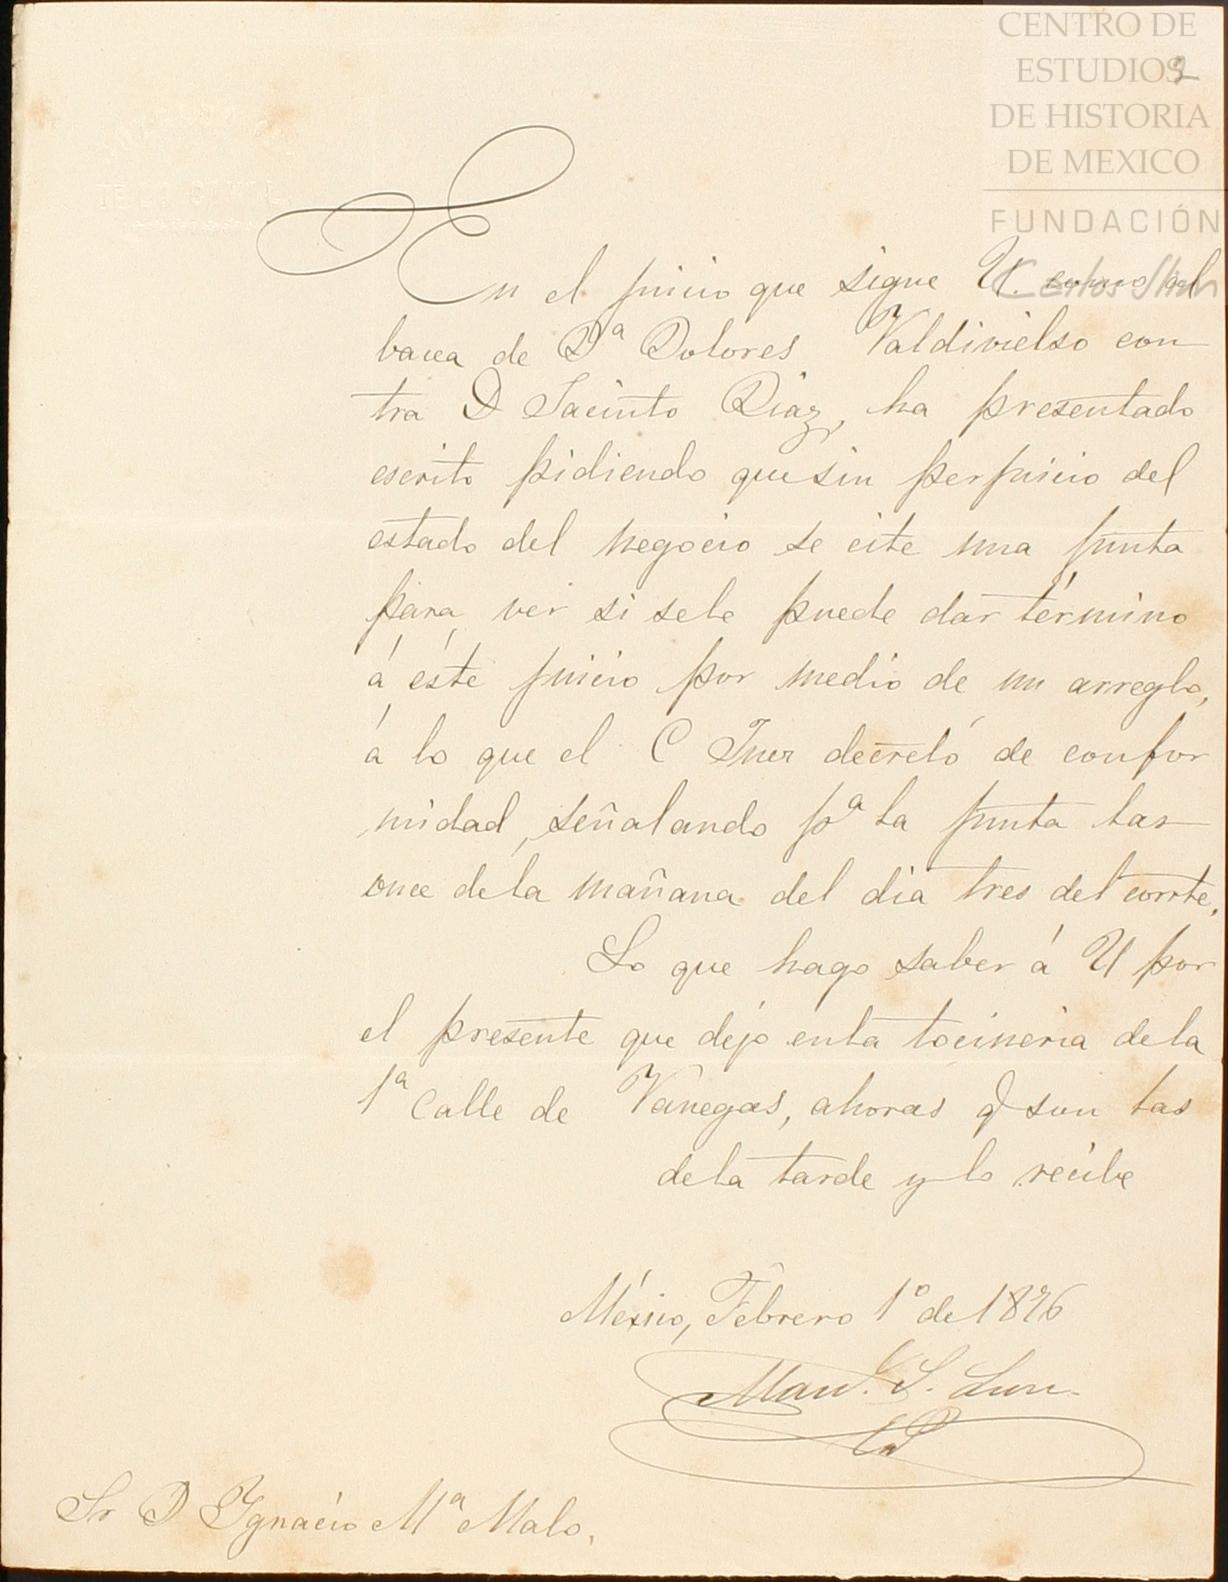 CENTRO DE
ESTUDIOS
DE HISTORIA
DE MEXICO
FUNDACIÓN
Carlos Slim
2
En el juicio que sigue U. como al
bacea de Dª Dolores Valdivielso con
tra D Jacinto Diaz, ha presentado
escrito pidiendo que sin perjuicio del
estado del negocio se cite una junta
para ver si se le puede dar término
á éste juicio por medio de un arreglo,
á lo que el C Juez decretó de confor
midad, señalando pª la junta las
once de la mañana del dia tres del corrte.
Lo que hago saber á U por
el presente que dejo en la tocineria de la
1ª Calle de Vanegas, ahoras q son las
de la tarde y lo recibe
México, Febrero 1º de 1896
Man. S. Luu
Sr D Ygnacio Mª Malo.